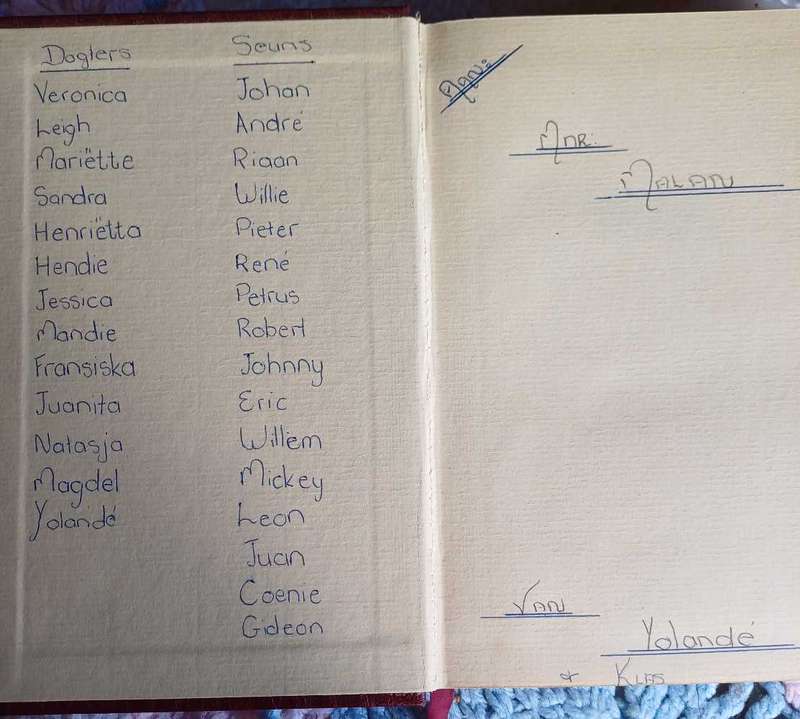 Dogters
Veronica
Leigh
Mariëtte
Sandra
Henriëtta
Hendie
Jessica
Mandie
Fransiska
Juanita
Natasja
Magdel
Yolandé
Seuns
Johan
André
Riaan
Willie
Pieter
René
Petrus
Robert
Johnny
Eric
Willem
Mickey
Leon
Juan
Coenie
Gideon
Aan:
Mnr.
Malan
Van
Yolandé
+ Klas